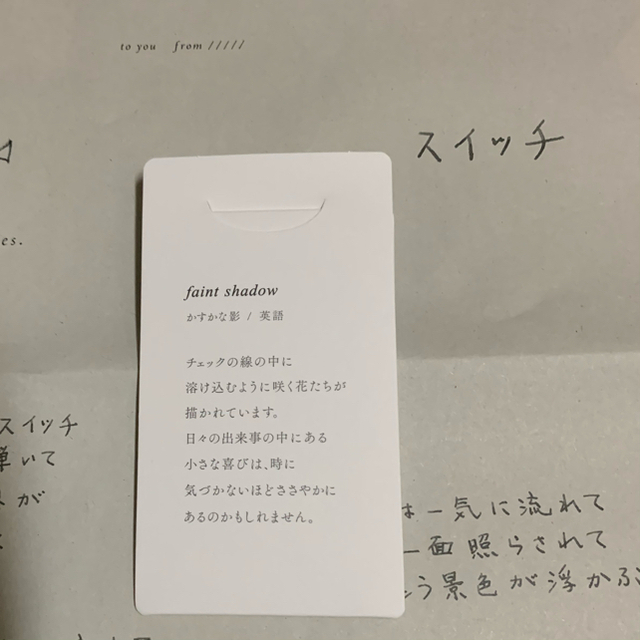 to you from /////
スイッチ
es.
faint shadow
かすかな影 / 英語
チェックの線の中に
溶け込むように咲く花たちが
描かれています。
日々の出来事の中にある
小さな喜びは、時に
気づかないほどささやかに
あるのかもしれません。
スイッチ
弾いて
が
は一気に流れて
一面照らされて
う景色が浮かぶ